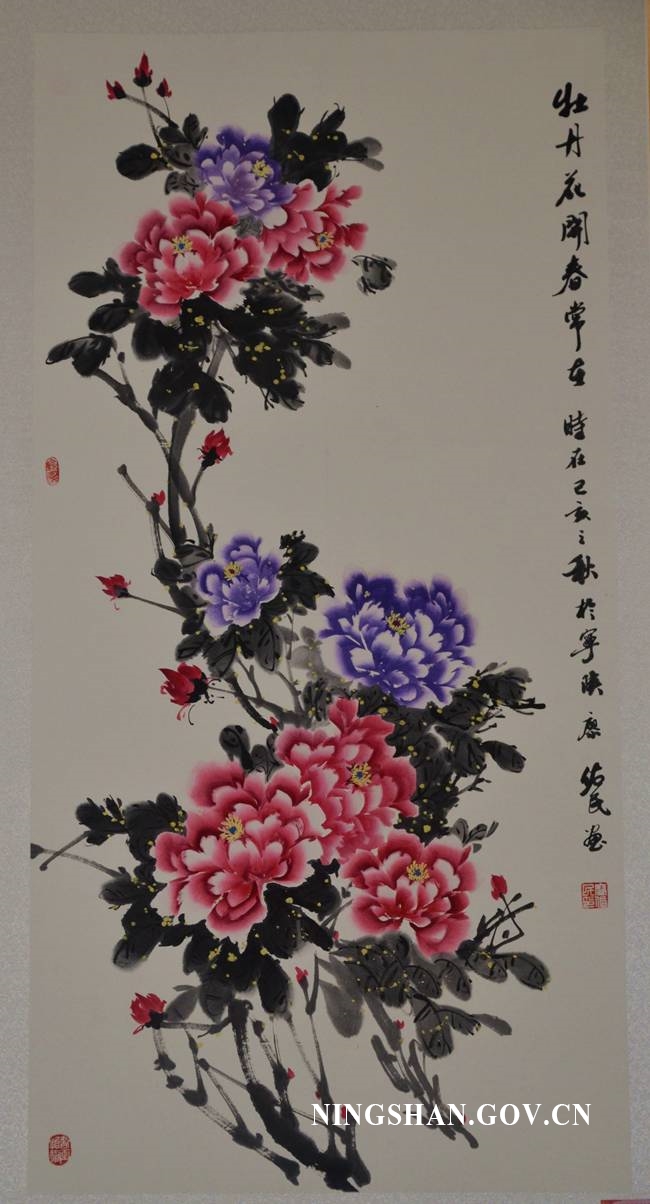 牡丹花開春常在
時在己亥之秋於寧陝廖佑民畫
NINGSHAN.GOV.CN